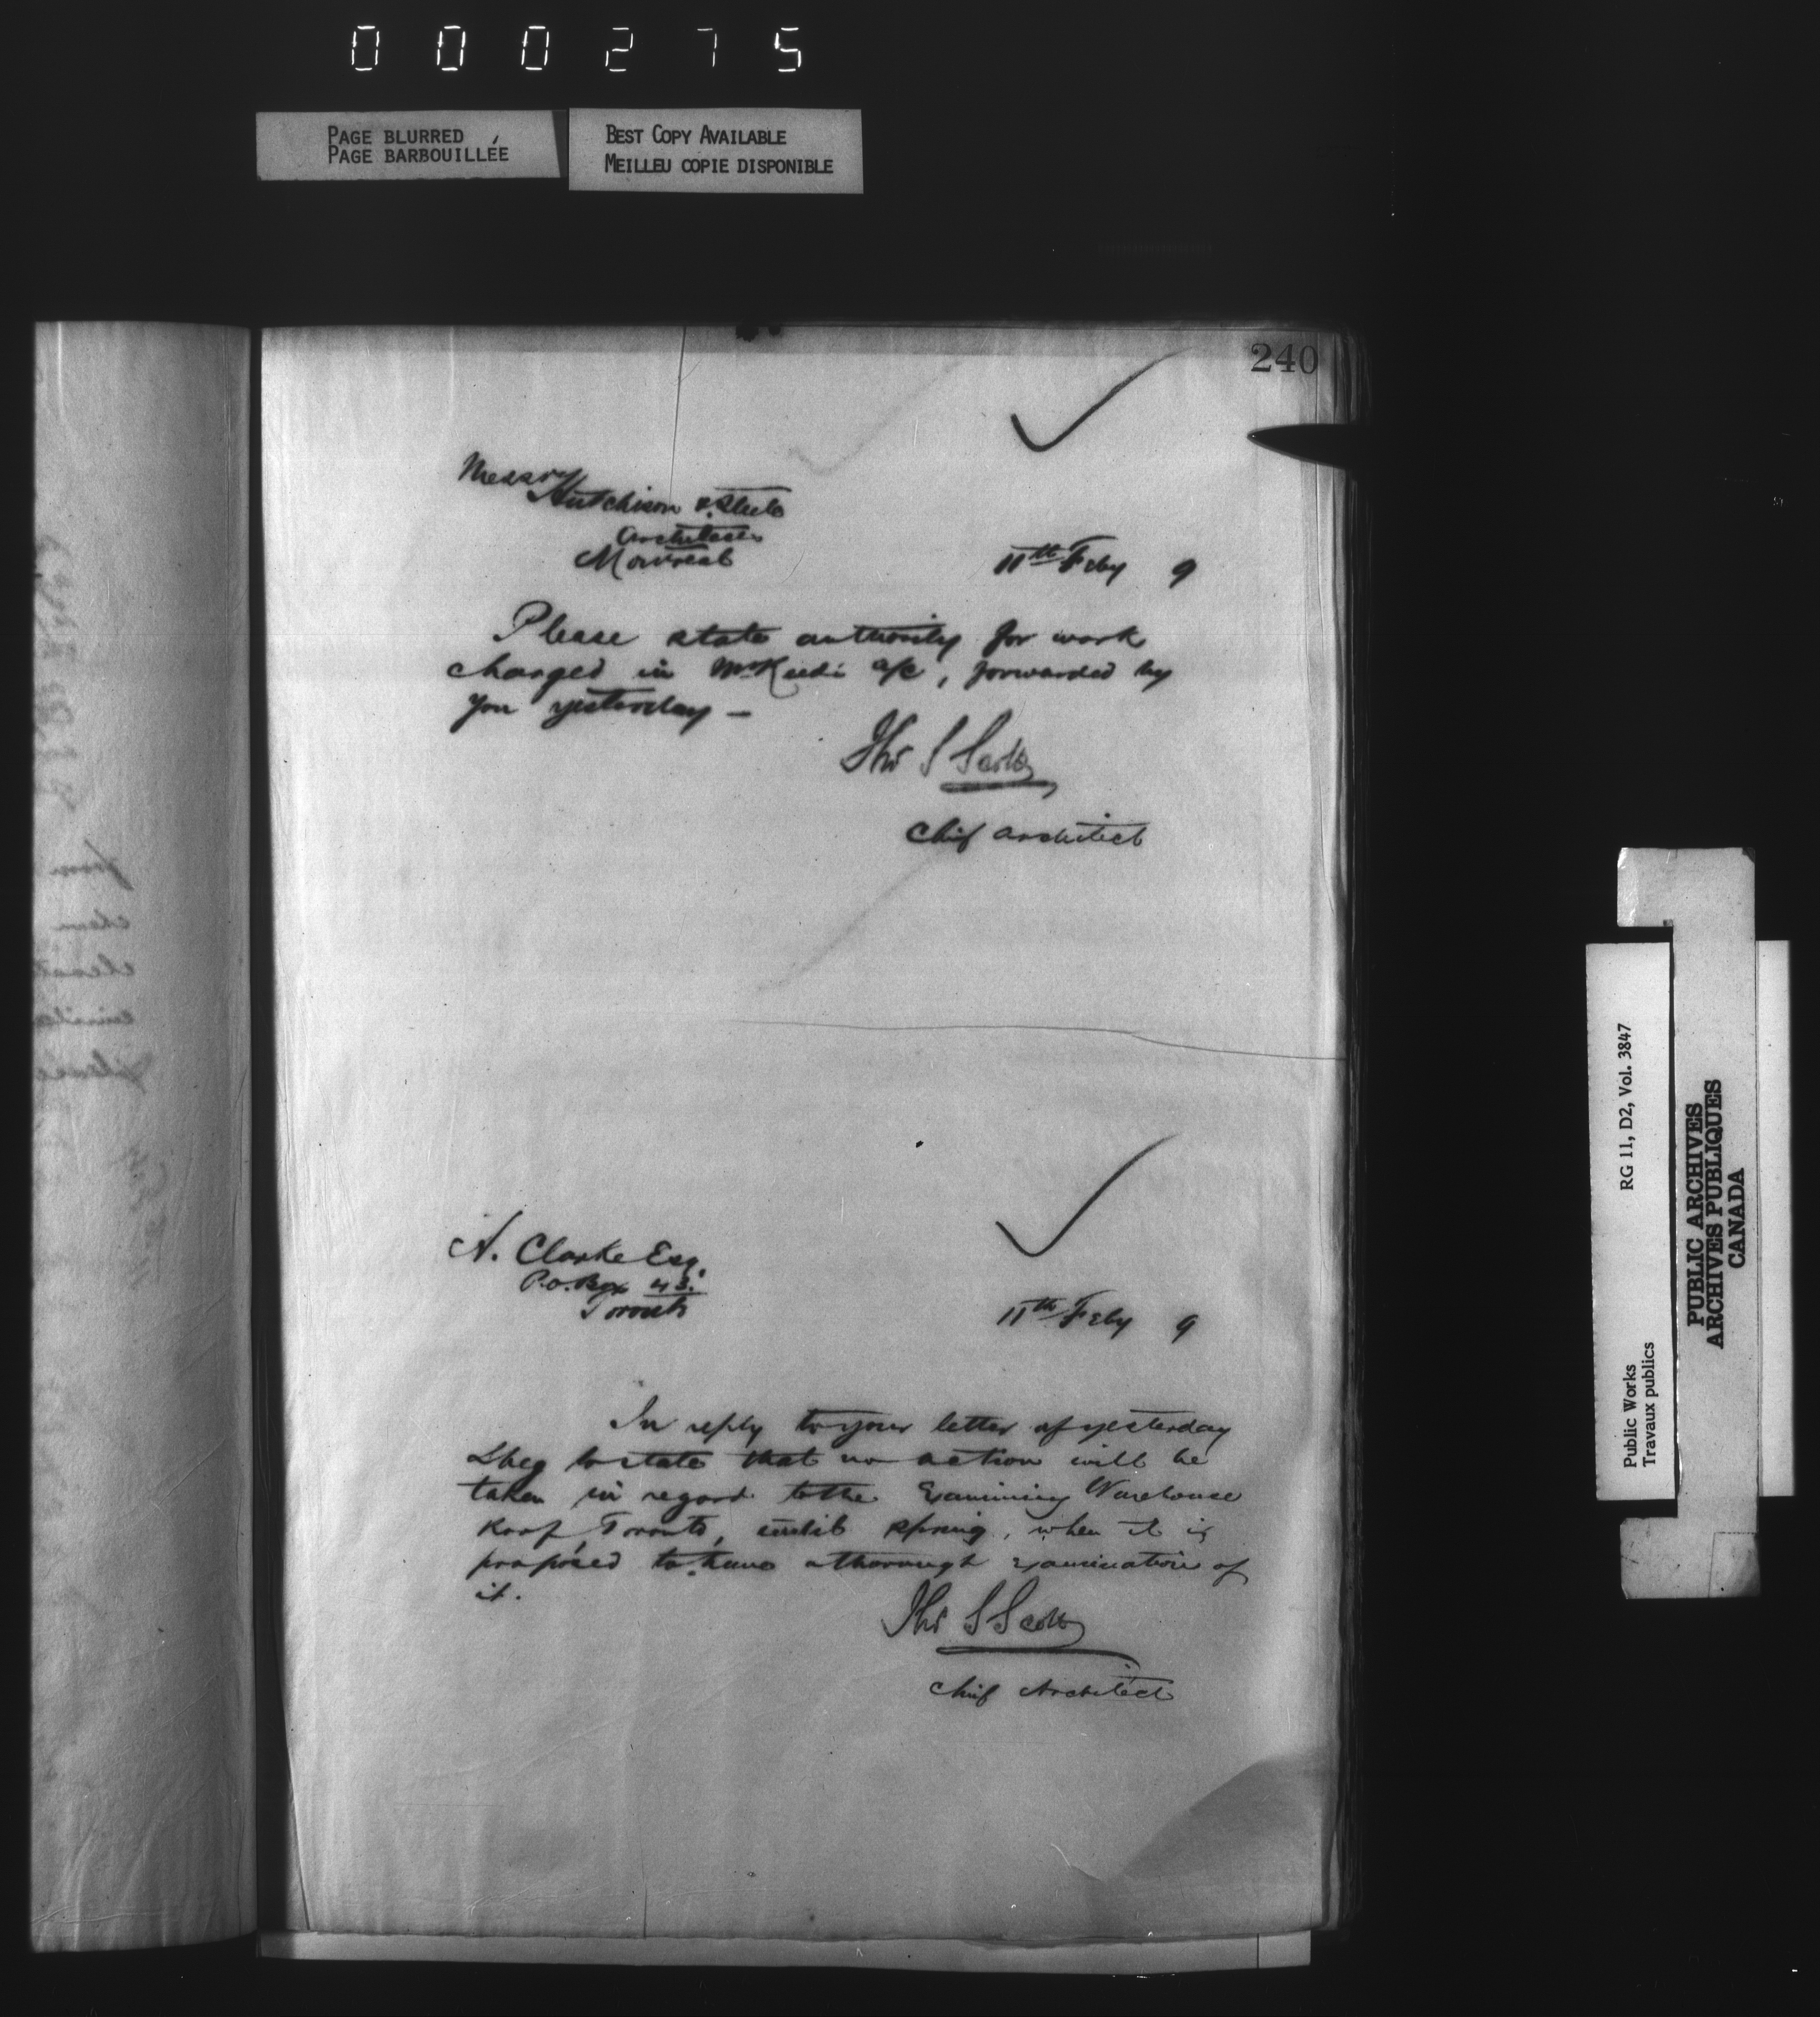 000275
PAGE BLURRED
PAGE BARBOUILLÉE
BEST COPY AVAILABLE
MEILLEU COPIE DISPONIBLE
240
Messrs
Hutchison & Steele
Architects
Montreal
11th Feby 9
Please state authority for work
charged in a/c, forwarded by
you yesterday —
Thos S Scott
Chief Architect
A. Clarke Esq.
P.O. Box 43.
Toronto
11th Feby 9
In reply to your letter of yesterday
I beg to state that no action will be
taken in regard to the Examining Warehouse
Roof Toronto, until spring, when it is
proposed to have a thorough examination of
it.
Thos S Scott
Chief Architect
Public Works
Travaux publics
RG 11, D2, Vol. 3847
PUBLIC ARCHIVES
ARCHIVES PUBLIQUES
CANADA